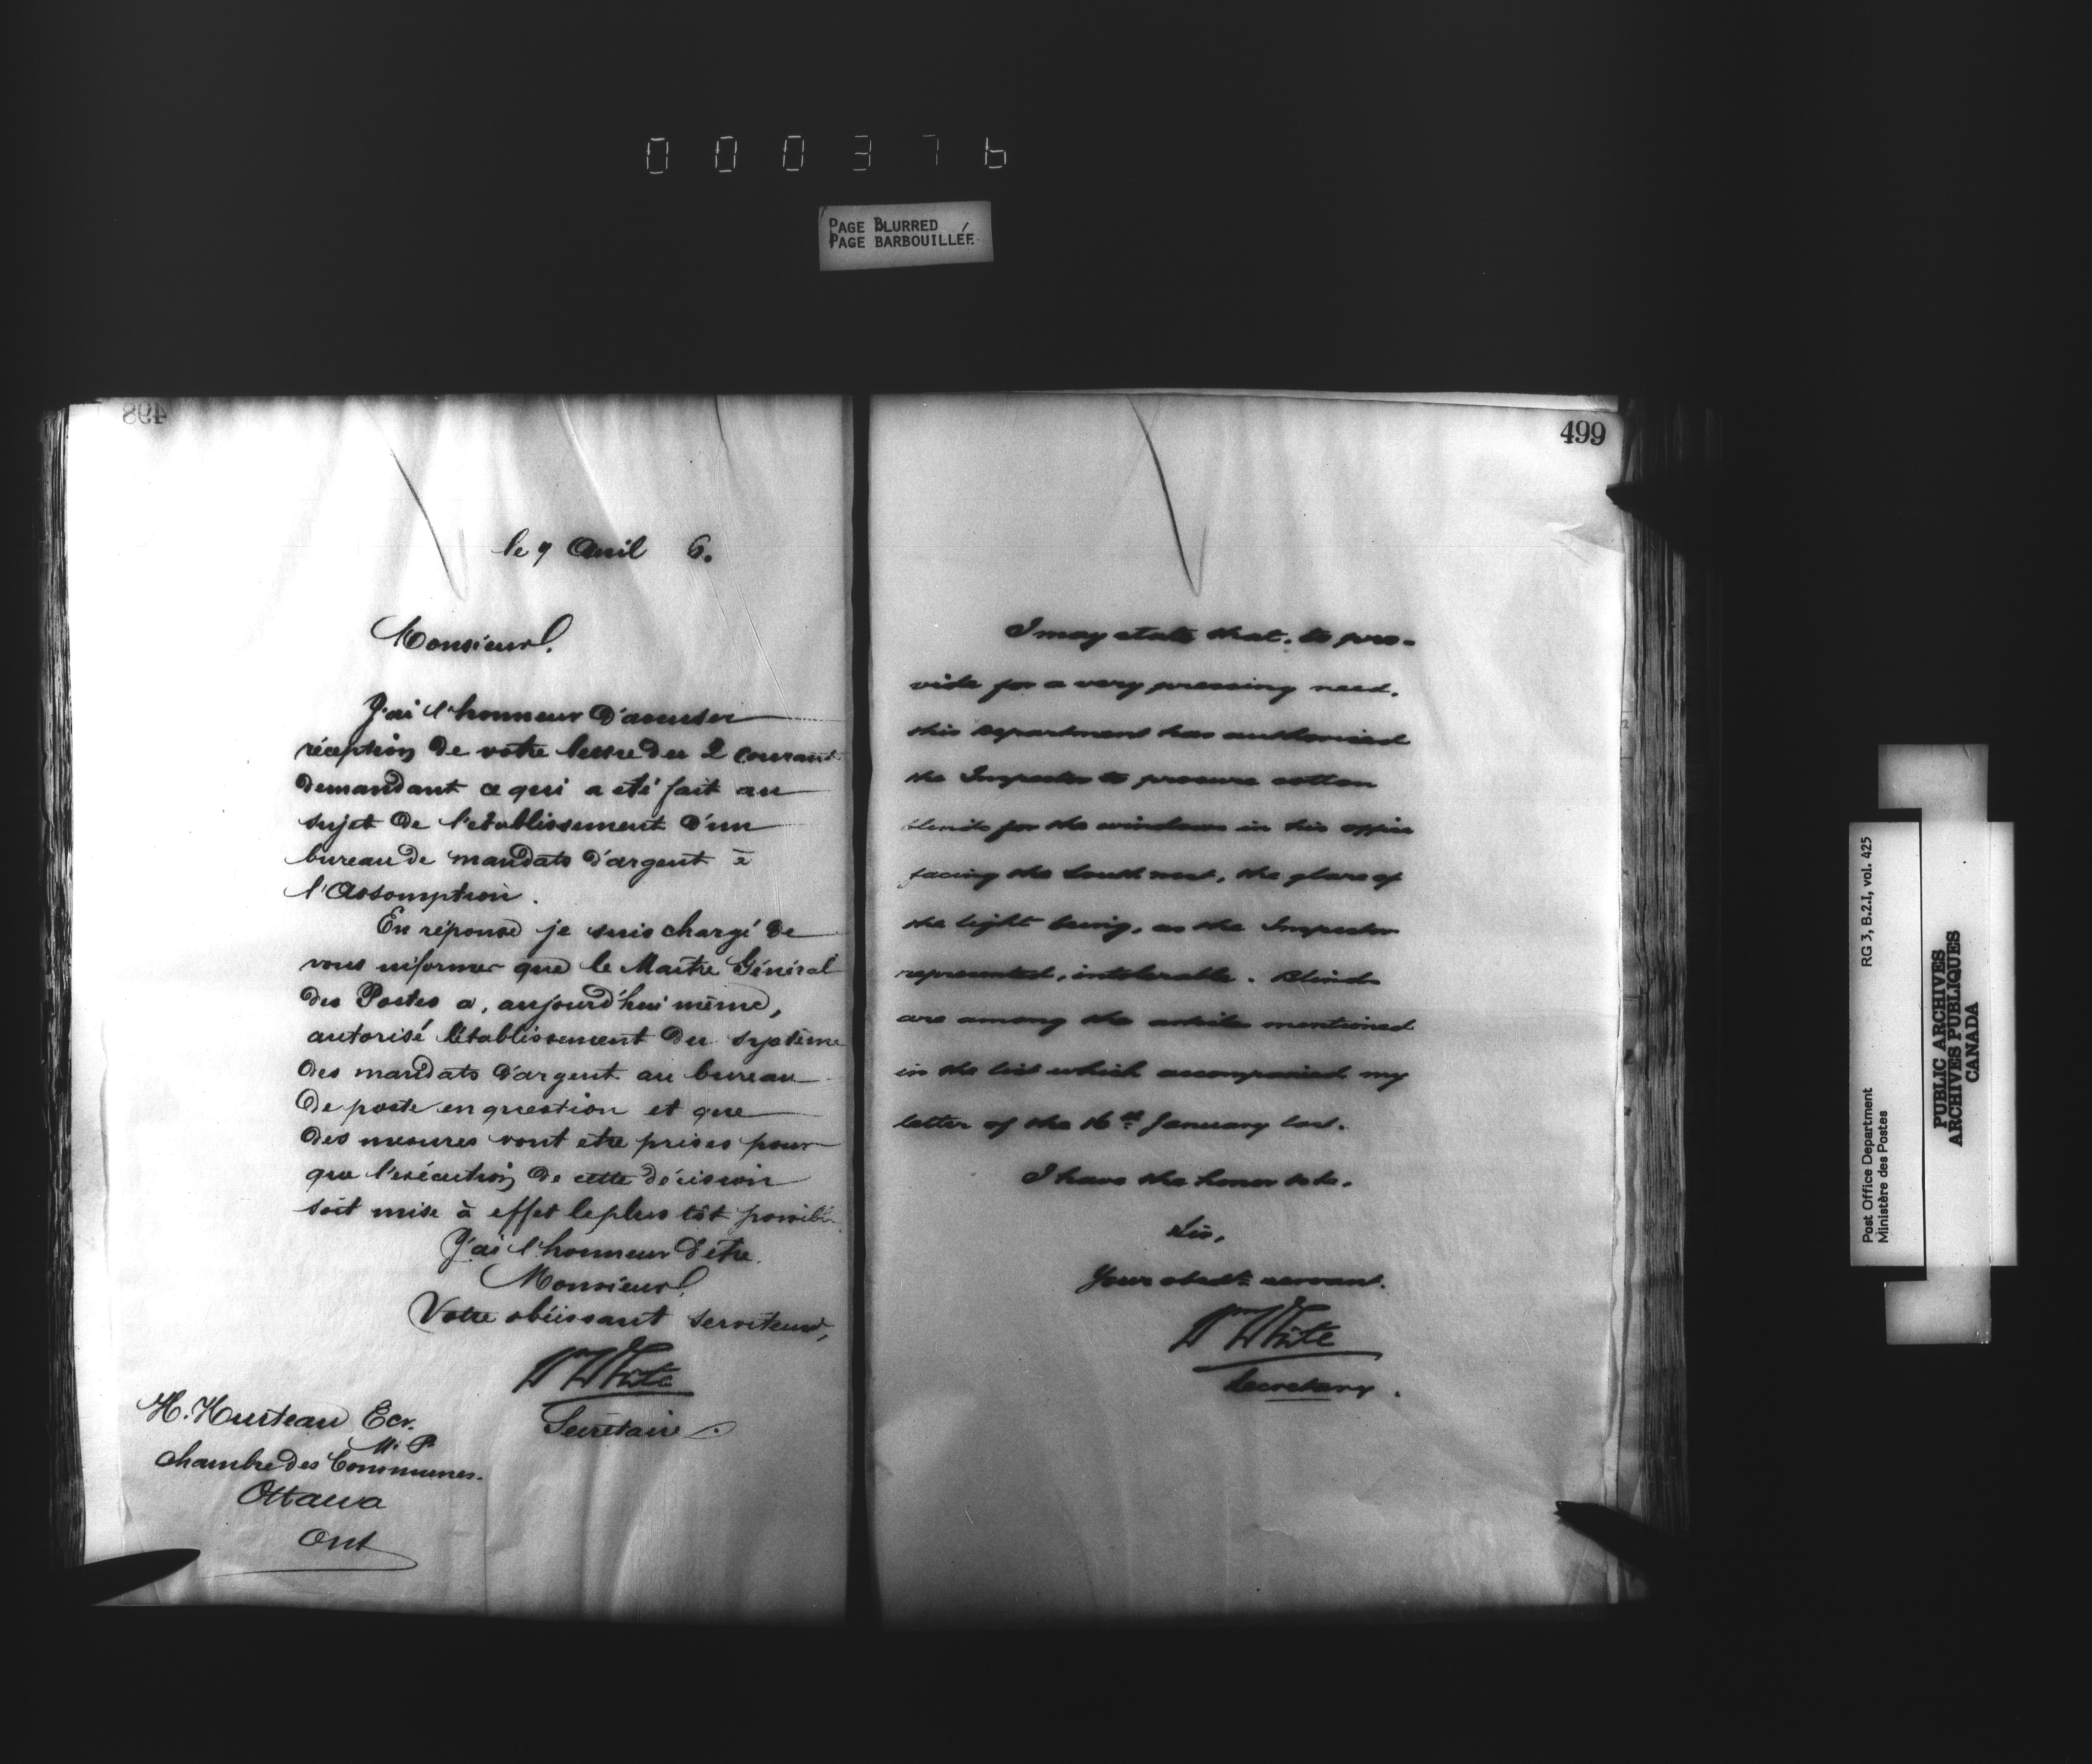 000376
PAGE BLURRED
PAGE BARBOUILLÉE
498
le 9 Avril 6.
Monsieur,
J'ai l'honneur d'accuser
réception de votre lettre du 2 courant
demandant ce qui a eté fait au
sujet de l'etablissement d'un
bureau de mandats d'argent à
l'Assomption.
En réponse je suis chargé de
vous informer que le Maitre Général
des Postes a, aujourd'hui même,
autorisé l'établissement du système
des mandats d'argent au bureau
de poste en question et que
des mesures vont etre prises pour
que l'exécution de cette décision
soit mise à effet le plus tôt possible
J'ai l'honneur d'être
Monsieur,
Votre obéissant serviteur,
Wm White
Secrétaire.
H. Hurteau Ecr.
M. P.
Chambre des Communes.
Ottawa
Ont
499
I may state that, to pro-
vide for a very pressing need,
this Department has authorized
the Inspector to procure cotton
blinds for the windows in his office
facing the South west, the glare of
the light being, as the Inspector
represented, intolerable. Blinds
are among the articles mentioned
in the list which accompanied my
letter of the 16th January last.
I have the honor to be,
Sir,
Your obedt. servant.
Wm White
Secretary.
Post Office Department
Ministère des Postes
RG 3, B.2.I, vol. 425
PUBLIC ARCHIVES
ARCHIVES PUBLIQUES
CANADA